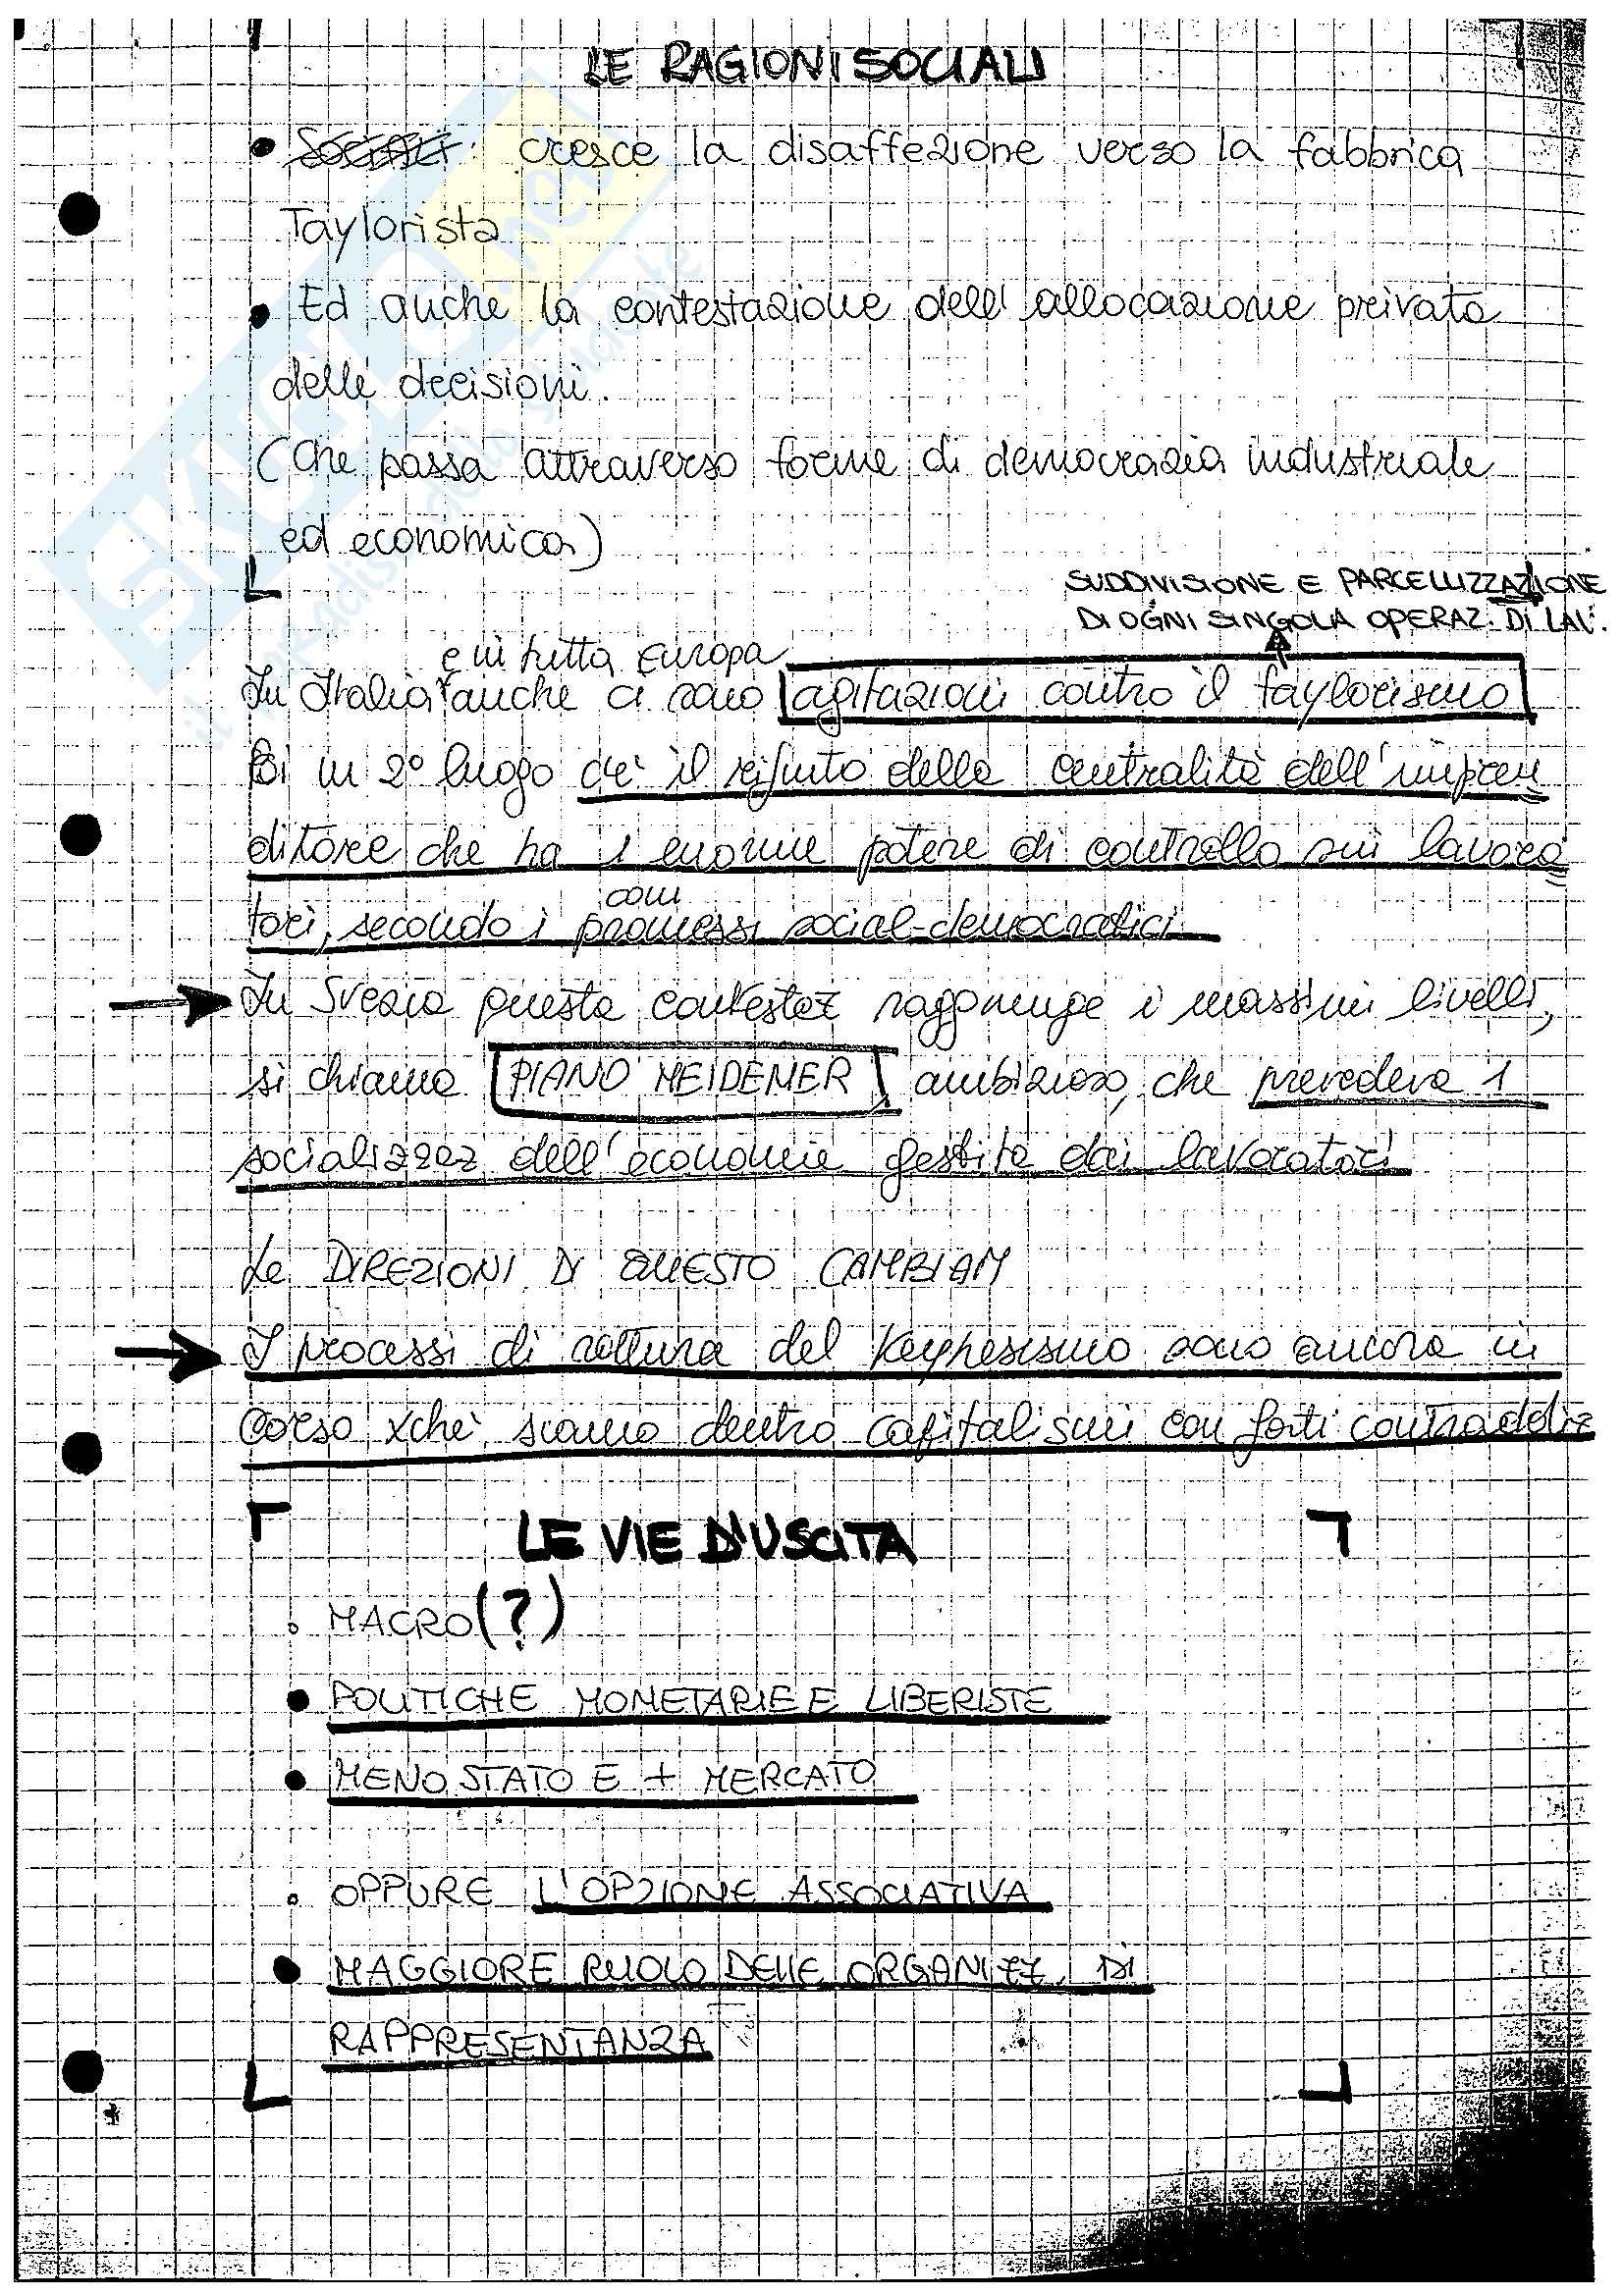 LE RAGIONI SOCIALI
• SOCIALI: cresce la disaffezione verso la fabbrica
Taylorista
• Ed anche la contestazione dell'allocazione privata
delle decisioni.
(che passa attraverso forme di democrazia industriale
ed economica)
SUDDIVISIONE E PARCELLIZZAZIONE
DI OGNI SINGOLA OPERAZ. DI LAV.
e in tutta Europa
In Italia anche ci sono agitazioni contro il taylorismo
Poi in 2° luogo c'è il rifiuto della centralità dell'impren
ditore che ha 1 enorme potere di controllo sui lavora
tori, secondo i promessi social-democratici
com
→ In Svezia questa contestaz raggiunge i massimi livelli,
si chiama PIANO MEIDENER, ambizioso, che prevedeva 1
socializzaz dell'economia gestita dai lavoratori
Le DIREZIONI DI QUESTO CAMBIAM
→ I processi di rottura del Keynesismo sono ancora in
corso xchè siamo dentro capitalismi con forti contraddiz
LE VIE D'USCITA
◦ MACRO (?)
• POLITICHE MONETARIE E LIBERISTE
• MENO STATO E + MERCATO
◦ OPPURE L'OPZIONE ASSOCIATIVA
• MAGGIORE RUOLO DELLE ORGANIZZ. DI
RAPPRESENTANZA
SKUOLA.net
il paradiso dello studente